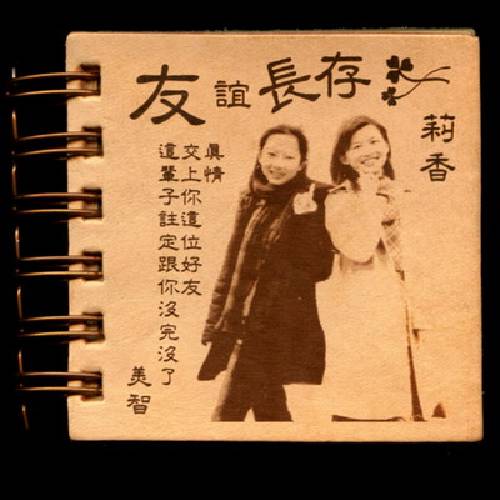 友誼長存
莉香
真情
交上你這位好友
這輩子註定跟你沒完沒了
美智